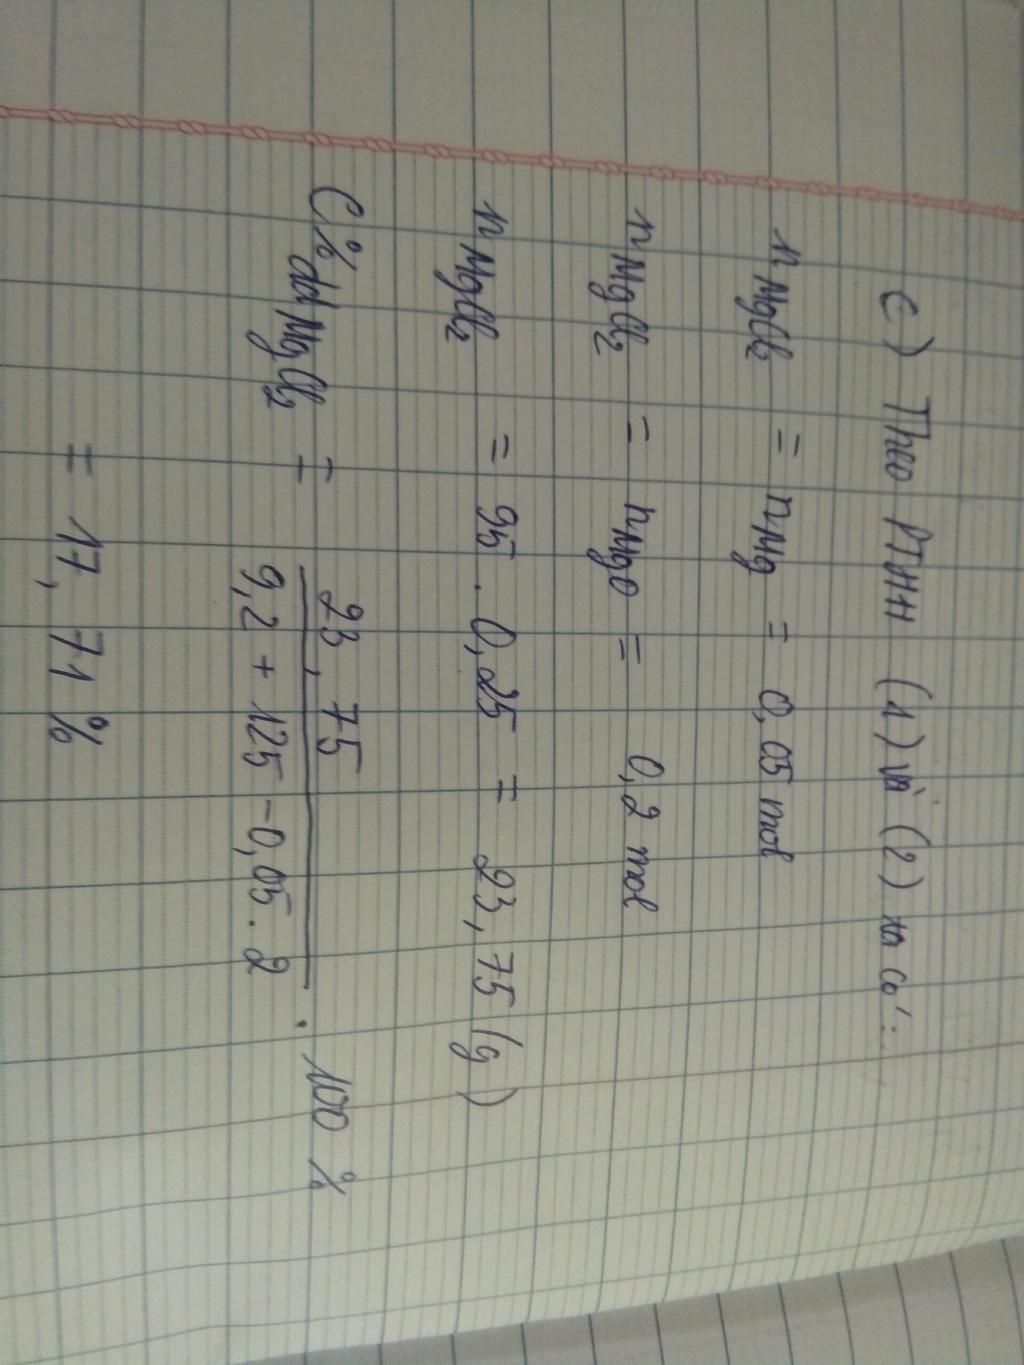 c) Theo PTHH (1) và (2) ta có:
nMgCl₂ = nMg = 0,05 mol
nMgCl₂ = nMgO = 0,2 mol
nMgCl₂ = 95 . 0,25 = 23,75 (g)
C% dd MgCl₂ = 23,75 / 9,2 + 125 - 0,05 . 2 . 100 %
= 17,71 %